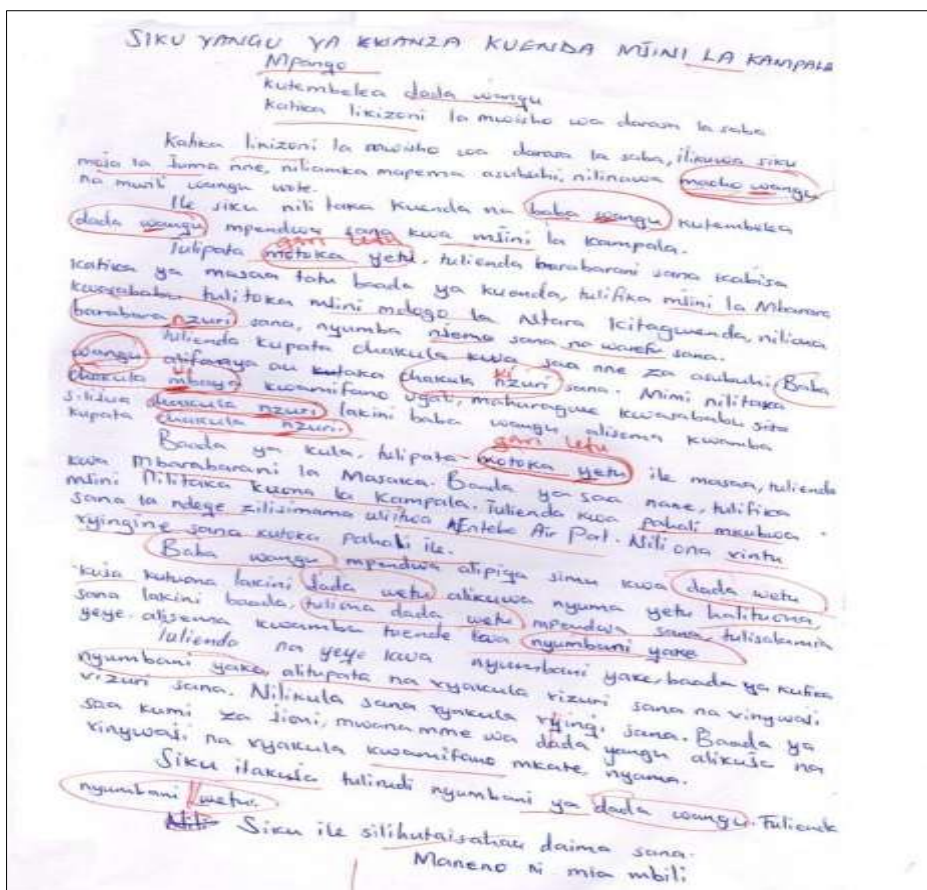 SIKU YANGU YA KWANZA KUENDA MJINI LA KAMPALA
Mpango
kutembelea dada wangu
katika likizoni la mwisho wa darasa la saba
Katika likizoni la mwisho wa darasa la saba, ilikuwa siku
moja la Juma nne, niliamka mapema asubuhi, nilinawa macho wangu
na mwili wangu wote.
Ile siku nili taka kuenda na baba wangu kutembelea
dada wangu mpendwa sana kwa mjini la Kampala.
gari letu
Tulipata motoka yetu, tulienda barabarani sana kabisa
katika ya masaa tatu baada ya kuenda, tulifika mjini la Mbarara
kwasababu tulitoka mjini mdogo la Ntara Kitagwenda, niliona
barabara nzuri sana, nyumba njema sana na warefu sana.
Tulienda kupata chakula kwa saa nne za asubuhi, Baba
wangu alifanya au kutaka chakula nzuri sana. Mimi nilitaka
ki
chakula mbaya kwamifano ugali, maharagwe kwasababu sita
silijua chakula nzuri lakini baba wangu alisema kwamba
kupata chakula nzuri.
gari letu
Baada ya kula, tulipata motoka yetu ile masaa, tulienda
kwa Mbarabarani la Masaka. Baada ya saa nane, tulifika
mjini Nilitaka kuona la Kampala. Tulienda kwa pahali mkubwa
sana la ndege zilisimama uliitwa Entebe Air Port. Nili ona vintu
vyingine sana kutoka pahali ile.
Baba wangu mpendwa alipiga simu kwa dada wetu
kuja kutuona lakini dada wetu alikuwa nyuma yetu halituona,
sana lakini baada, tuliona dada wetu mpendwa sana, tulisalamia
yeye. alisema kwamba tuende kwa nyumbani yake
Tulienda na yeye kwa nyumbani yake, baada ya kufika
nyumbani yake, alitupata na vyakula vizuri sana na vinywaji
vizuri sana. Nilikula sana vyakula vyingi sana. Baada ya
saa kumi za jioni, mwanamme wa dada yangu alikuja na
vinywaji na vyakula kwamifano mkate, nyama.
Siku ilakuja tulirudi nyumbani ya dada wangu. Tulienda
nyumbani wetu.
Siku ile silihutaisahau daima sana.
Maneno ni mia mbili